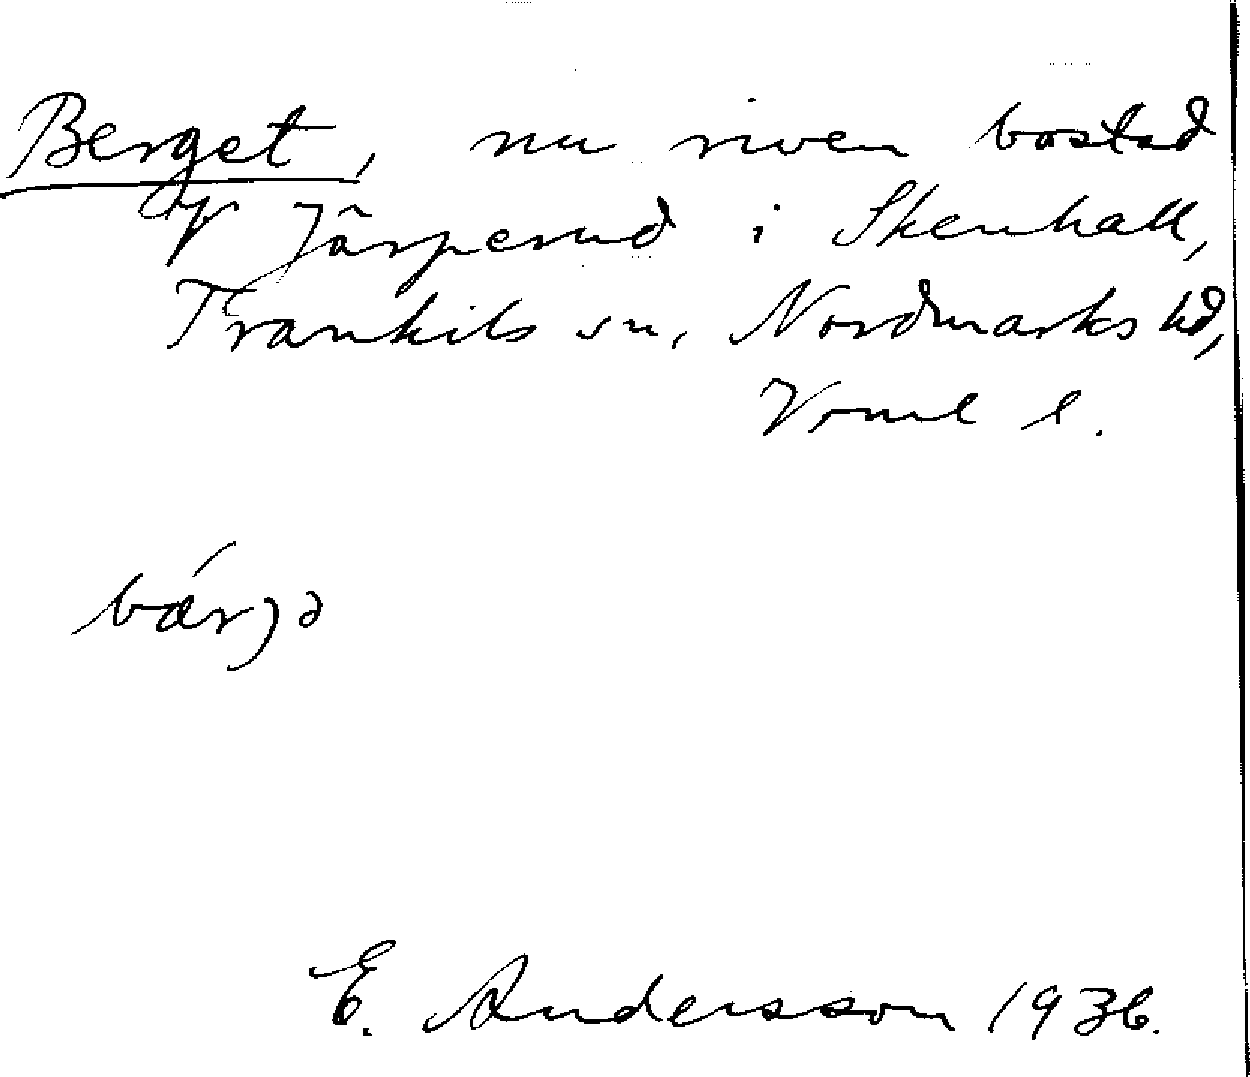 Berget, nu riven bostad
V Järperud i Skenhall,
Trankils sn, Nordmarks hd,
Vrml l.
bærjə
E. Andersson 1936.